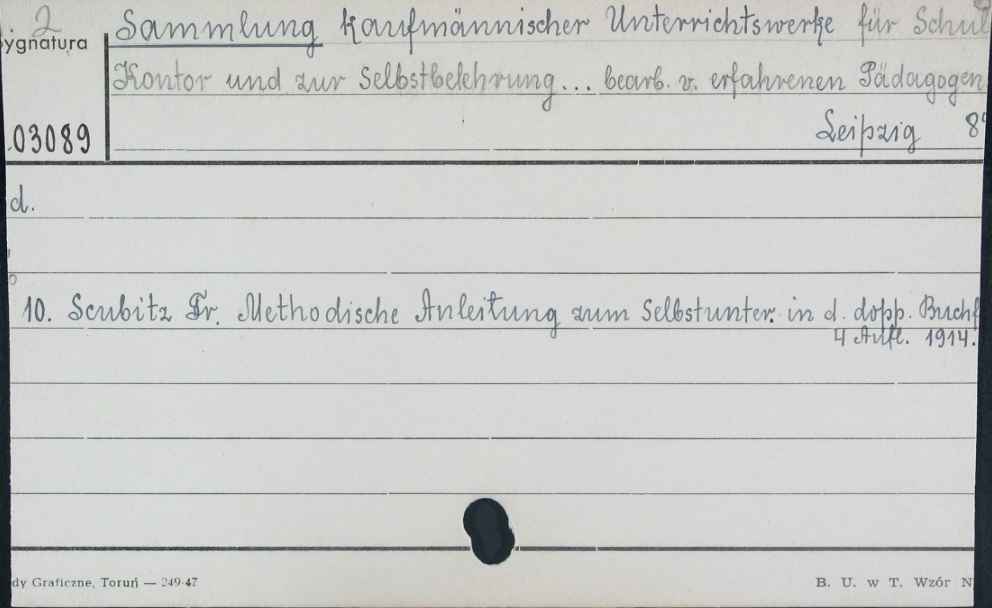 2 Sammlung kaufmännischer Unterrichtswerke für Schul
ygnatura
Kontor und zur Selbstbelehrung... bearb. v. erfahrenen Pädagogen
03089 Leipzig 8°
d.
10. Scubitz Fr. Methodische Anleitung zum Selbstunter. in d. dopp. Buchf
4 Aufl. 1914.
dy Graficzne, Toruń — 249-47 B. U. w T. Wzór N